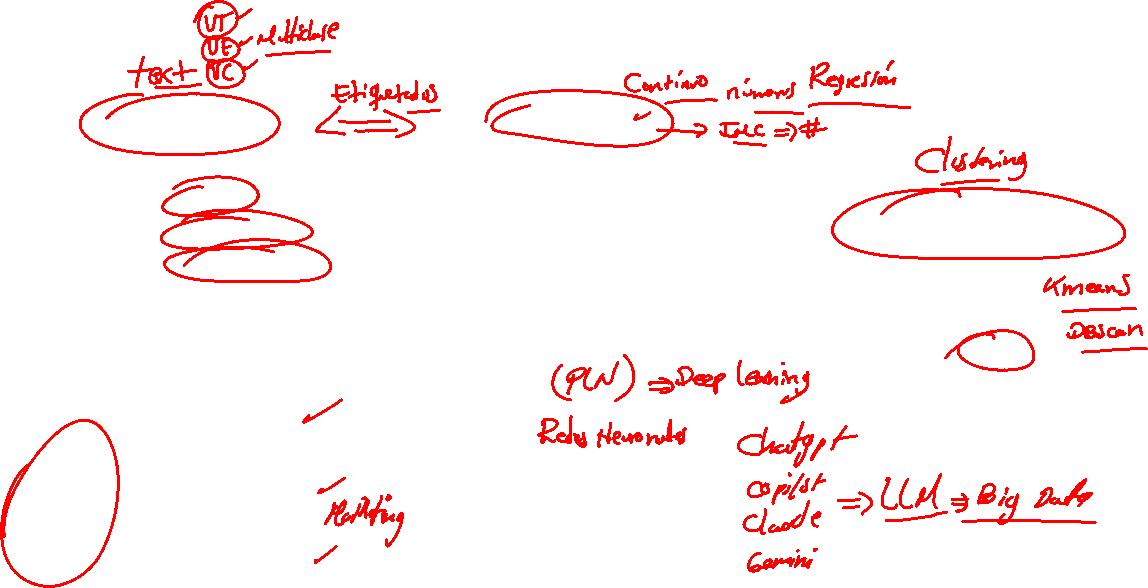 VT
VE Multiclase
text VC
Etiquetados
Continuo números Regresión
IMC => #
Clustering
Kmeans
DBscan
(PLN) => Deep Learning
Redes Neuronales
Chatgpt
Copilot
Claude => LLM => Big Data
Gemini
Marketing